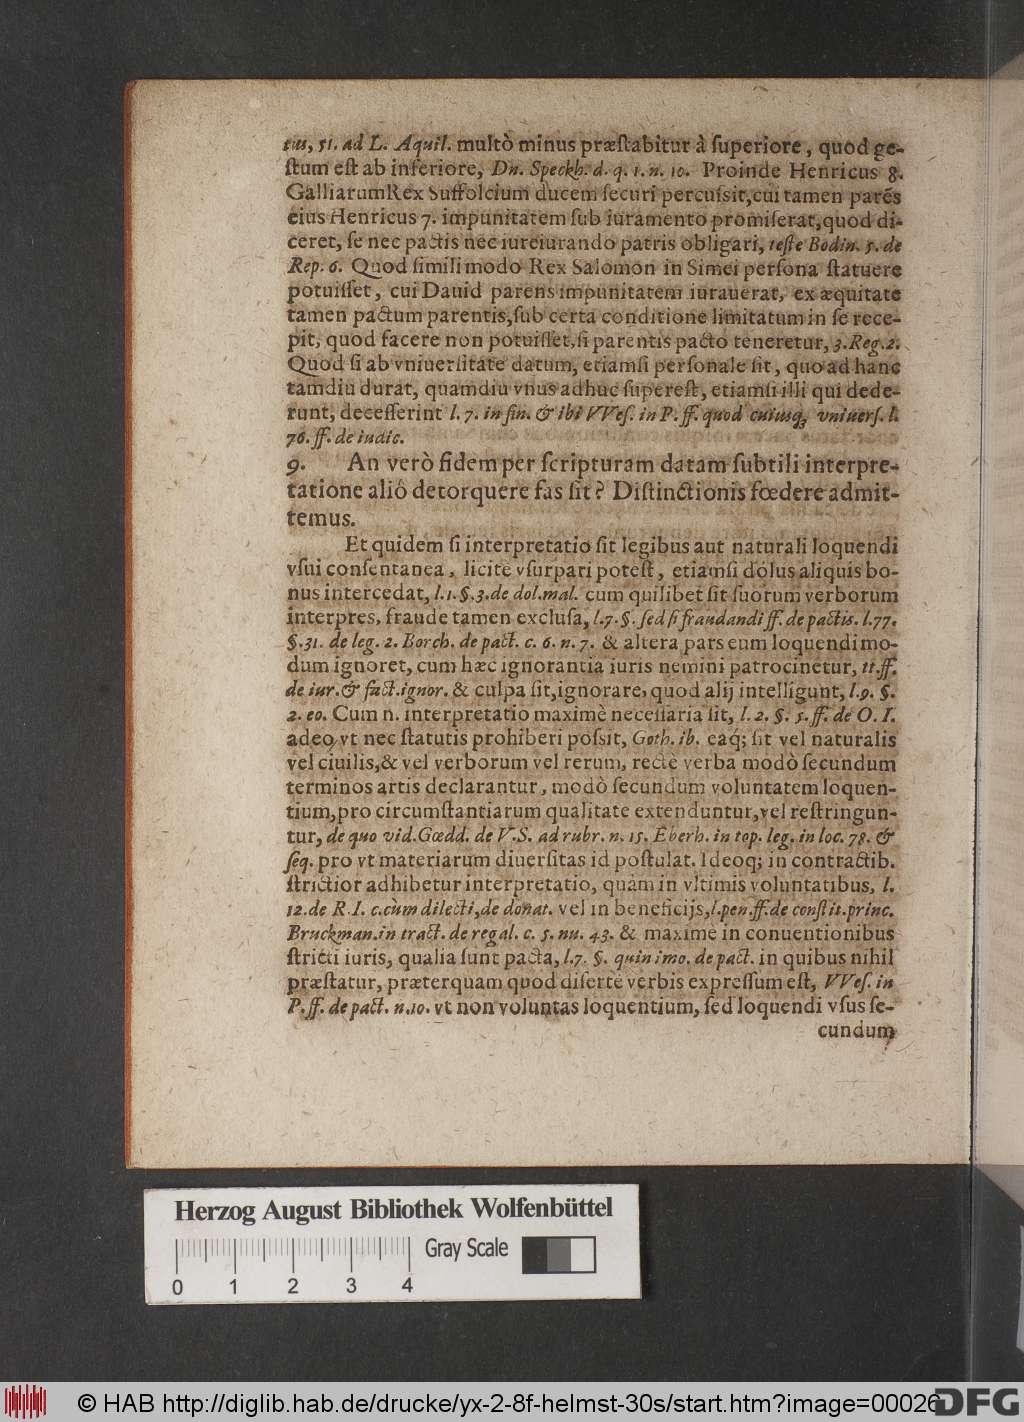 tus, 51. ad L. Aquil. multò minus præſtabitur à ſuperiore, quod ge-
ſtum eſt ab inferiore, Dn. Speckh. d. q. 1. n. 10. Proinde Henricus 8.
Galliarum Rex Suffolcium ducem ſecuri percuſsit, cui tamen parēs
eius Henricus 7. impunitatem ſub iuramento promiſerat, quod di-
ceret, ſe nec pactis nec iureiurando patris obligari, teſte Bodin. 5. de
Rep. 6. Quod ſimili modo Rex Salomon in Simei perſona ſtatuere
potuiſſet, cui Dauid parens impunitatem iurauerat, ex æquitate
tamen pactum parentis, ſub certa conditione limitatum in ſe rece-
pit, quod facere non potuiſſet, ſi parentis pacto teneretur, 3. Reg. 2.
Quod ſi ab vniuerſitate datum, etiamſi perſonale ſit, quo ad hanc
tamdiu durat, quamdiu vnus adhuc ſupereſt, etiamſi illi qui dede-
runt, deceſſerint l. 7. in fin. & ibi VVeſ. in P. ff. quod cuiusq; vniuerſ. l.
76. ff. de iudic.
9. An verò fidem per ſcripturam datam ſubtili interpre-
tatione aliò detorquere fas ſit? Diſtinctionis fœdere admit-
temus.
Et quidem ſi interpretatio ſit legibus aut naturali loquendi
vſui conſentanea, licitè vſurpari poteſt, etiamſi dolus aliquis bo-
nus intercedat, l. 1. §. 3. de dol. mal. cum quilibet ſit ſuorum verborum
interpres, fraude tamen excluſa, l. 7. §. ſed ſi fraudandi ff. de pactis. l. 77.
§. 31. de leg. 2. Borch. de pact. c. 6. n. 7. & altera pars eum loquendi mo-
dum ignoret, cum hæc ignorantia iuris nemini patrocinetur, tt. ff.
de iur. & fact. ignor. & culpa ſit, ignorare, quod alij intelligunt, l. 9. §.
2. eo. Cum n. interpretatio maximè neceſſaria ſit, l. 2. §. 5. ff. de O. I.
adeo, vt nec ſtatutis prohiberi poſsit, Goth. ib. eaq́; ſit vel naturalis
vel ciuilis, & vel verborum vel rerum, rectè verba modò ſecundum
terminos artis declarantur, modò ſecundum voluntatem loquen-
tium, pro circumſtantiarum qualitate extenduntur, vel reſtringun-
tur, de quo vid. Gœdd. de V. S. ad rubr. n. 15. Eberh. in top. leg. in loc. 78. &
ſeq. pro vt materiarum diuerſitas id poſtulat. Ideoq; in contractib.
ſtrictior adhibetur interpretatio, quàm in vltimis voluntatibus, l.
12. de R. I. c. cùm dilecti, de donat. vel in beneficijs, l. pen. ff. de conſtit. princ.
Bruckman. in tract. de regal. c. 5. nu. 43. & maximè in conuentionibus
ſtricti iuris, qualia ſunt pacta, l. 7. §. quin imo. de pact. in quibus nihil
præſtatur, præterquam quod diſertè verbis expreſſum eſt, VVeſ. in
P. ff. de pact. n. 10. vt non voluntas loquentium, ſed loquendi vſus ſe-
cundum
Herzog August Bibliothek Wolfenbüttel
Gray Scale
0 1 2 3 4
© HAB http://diglib.hab.de/drucke/yx-2-8f-helmst-30s/start.htm?image=00026
DFG